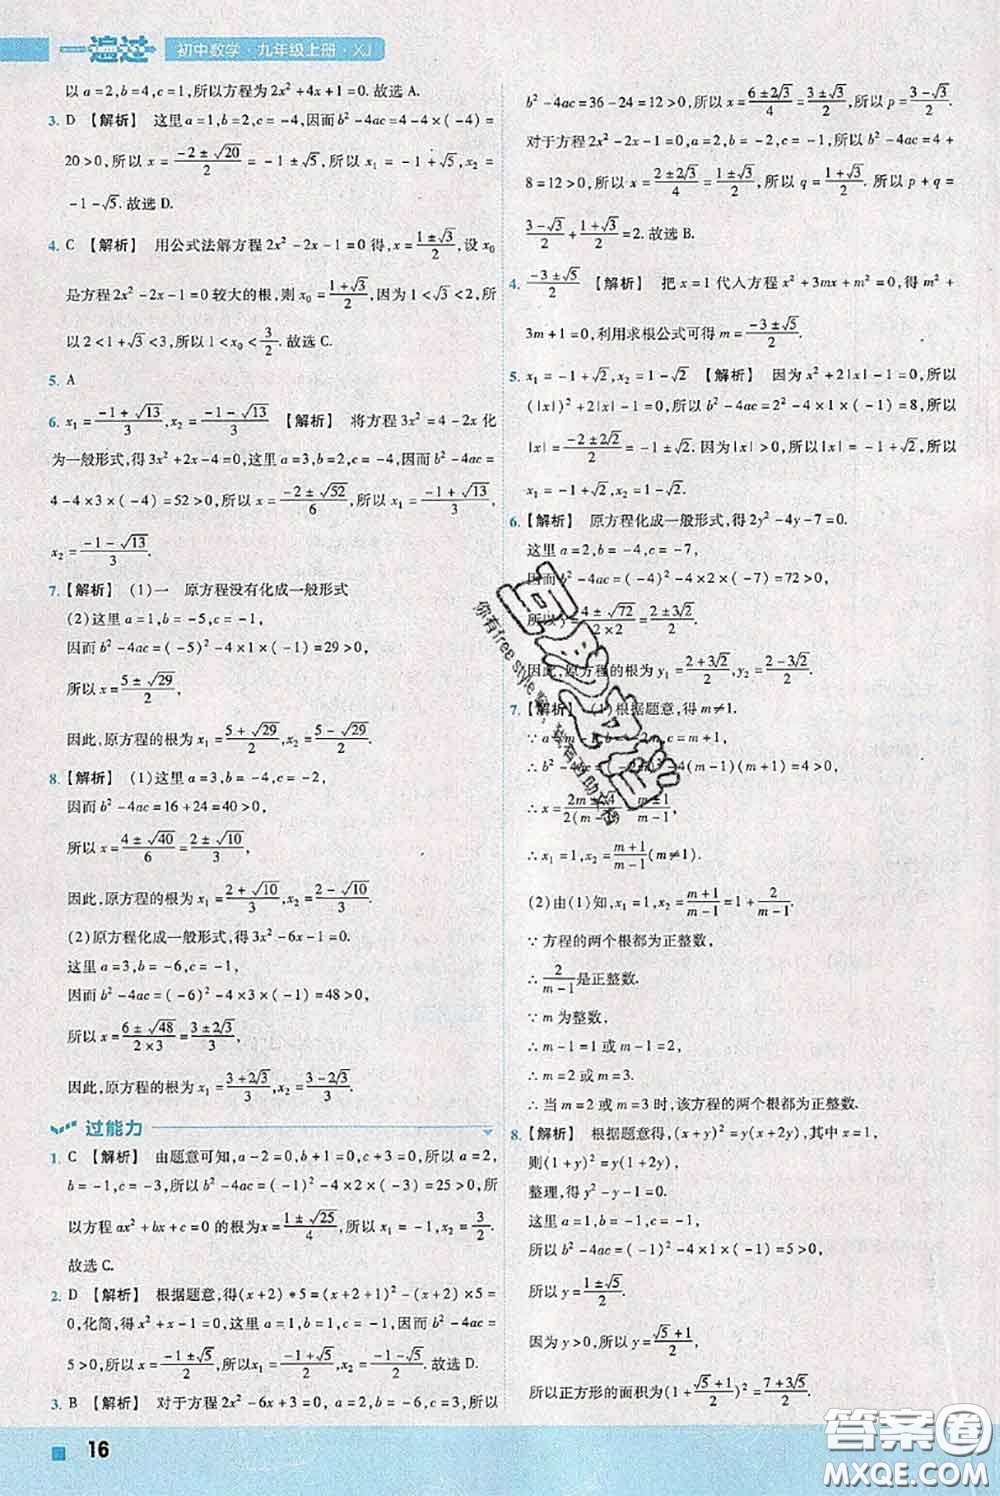 一遍过 初中数学·九年级上册·XJ
以 a=2,b=4,c=1,所以方程为2x²+4x+1=0.故选 A.
3. D 【解析】 这里 a=1,b=2,c=-4,因而 b²-4ac=4-4×(-4)=
20>0,所以 x=(-2±√20)/2=-1±√5,所以 x₁=-1+√5,x₂=
-1-√5.故选 D.
4. C 【解析】 用公式法解方程 2x²-2x-1=0 得,x=(1±√3)/2,设 x₀
是方程2x²-2x-1=0较大的根,则 x₀=(1+√3)/2,因为 1<√3<2,所
以 2<1+√3<3,所以 1<x₀<3/2.故选 C.
5. A
6. x₁=(-1+√13)/3,x₂=(-1-√13)/3 【解析】 将方程 3x²=4-2x 化
为一般形式,得3x²+2x-4=0,这里 a=3,b=2,c=-4,因而 b²-4ac=
4-4×3×(-4)=52>0,所以 x=(-2±√52)/6,所以 x₁=(-1+√13)/3,
x₂=(-1-√13)/3.
7. 【解析】 (1)一 原方程没有化成一般形式
(2)这里 a=1,b=-5,c=-1,
因而 b²-4ac=(-5)²-4×1×(-1)=29>0,
所以 x=(5±√29)/2,
因此,原方程的根为 x₁=(5+√29)/2,x₂=(5-√29)/2.
8. 【解析】 (1)这里 a=3,b=-4,c=-2,
因而 b²-4ac=16+24=40>0,
所以 x=(4±√40)/6=(2±√10)/3,
因此,原方程的根为 x₁=(2+√10)/3,x₂=(2-√10)/3.
(2)原方程化成一般形式,得 3x²-6x-1=0.
这里 a=3,b=-6,c=-1,
因而 b²-4ac=(-6)²-4×3×(-1)=48>0,
所以 x=(6±√48)/(2×3)=(3±2√3)/3,
因此,原方程的根为 x₁=(3+2√3)/3,x₂=(3-2√3)/3.
过能力
1. C 【解析】 由题意可知,a-2=0,b+1=0,c+3=0,所以 a=2,
b=-1,c=-3,所以 b²-4ac=(-1)²-4×2×(-3)=25>0,所
以方程 ax²+bx+c=0 的根为x=(1±√25)/4,所以 x₁=-1,x₂=3/2.
故选 C.
2. D 【解析】 根据题意,得(x+2)*5=(x+2+1)²-(x+2)×5=
0,化简,得 x²+x-1=0,这里 a=1,b=1,c=-1,因而 b²-4ac=
5>0,所以 x=(-1±√5)/2,所以x₁=(-1+√5)/2,x₂=(-1-√5)/2.故选 D.
3. B 【解析】 对于方程 2x²-6x+3=0,a=2,b=-6,c=3,所以
b²-4ac=36-24=12>0,所以 x=(6±2√3)/4=(3±√3)/2,所以 p=(3-√3)/2.
对于方程 2x²-2x-1=0,a=2,b=-2,c=-1,所以 b²-4ac=4+
8=12>0,所以 x=(2±2√3)/4=(1±√3)/2,所以 q=(1+√3)/2.所以 p+q=
(3-√3)/2+(1+√3)/2=2.故选 B.
4. (-3±√5)/2 【解析】 把 x=1 代入方程 x²+3mx+m²=0,得 m²+
3m+1=0,利用求根公式可得 m=(-3±√5)/2.
5. x₁=-1+√2,x₂=1-√2 【解析】 因为 x²+2|x|-1=0,所以
(|x|)²+2|x|-1=0,所以 b²-4ac=2²-4×1×(-1)=8,所以
|x|=(-2±2√2)/2=-1±√2.因为|x|>0,所以|x|=-1+√2,所以
x₁=-1+√2,x₂=1-√2.
6. 【解析】 原方程化成一般形式,得2y²-4y-7=0.
这里 a=2,b=-4,c=-7,
因而 b²-4ac=(-4)²-4×2×(-7)=72>0,
所以 y=(4±√72)/(2×2)=(2±3√2)/2,
因此,原方程的根为 y₁=(2+3√2)/2,y₂=(2-3√2)/2.
7. 【解析】 (1)根据题意,得 m≠1.
∵ a=m-1,b=-2m,c=m+1,
∴ b²-4ac=(-2m)²-4(m-1)(m+1)=4,
∴ x=(2m±√4)/(2(m-1))=(m±1)/(m-1),
∴ x₁=1,x₂=(m+1)/(m-1)(m≠1).
(2)由(1)知,x₁=1,x₂=(m+1)/(m-1)=1+2/(m-1).
∵ 方程的两个根都为正整数,
∴ 2/(m-1)是正整数.
∵ m 为整数,
∴ m-1=1 或 m-1=2,
∴ m=2 或 m=3.
∴ 当 m=2 或 m=3 时,该方程的两个根都为正整数.
8. 【解析】 根据题意得,(x+y)²=y(x+2y),其中 x=1,
则(1+y)²=y(1+2y),
整理,得 y²-y-1=0.
这里 a=1,b=-1,c=-1,
所以 b²-4ac=(-1)²-4×1×(-1)=5>0,
所以 y=(1±√5)/2.
因为 y>0,所以 y=(√5+1)/2.
所以正方形的面积为((√5+1)/2+1)²=(7+3√5)/2.
16
答案圈
MXQE.COM